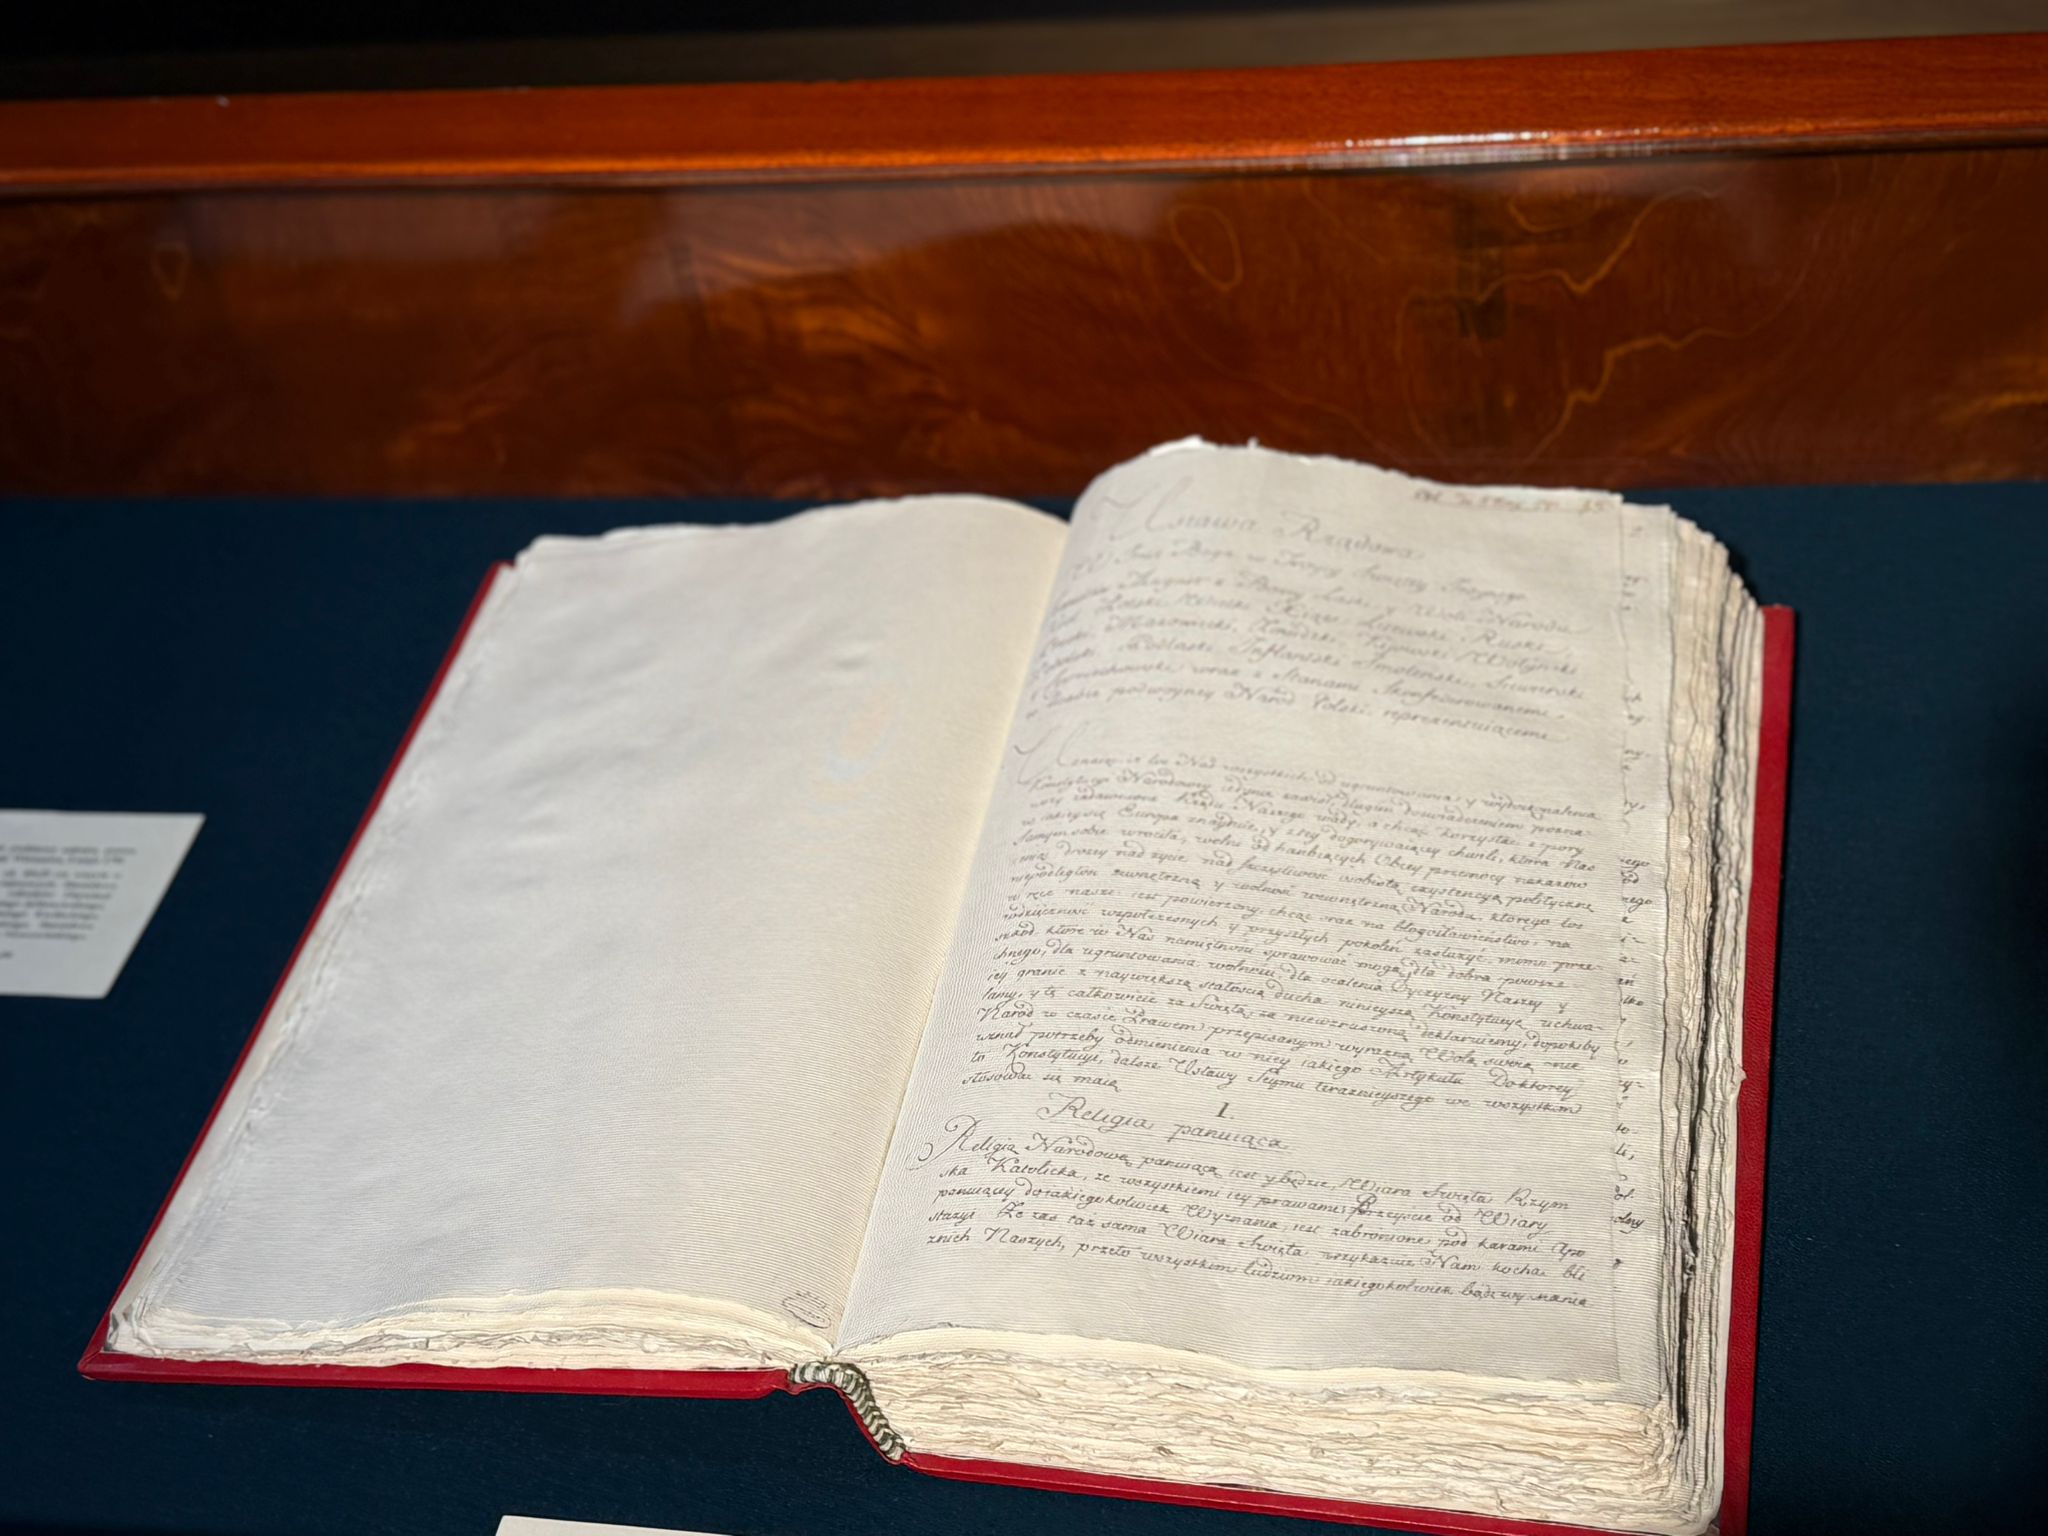 Ustawa Rządowa
W Imie Boga w Trojcy Swiętey Jedynego
Stanisław August z Bozey Łaski y Woli Narodu
Krol Polski Wielki Xiąze Litewski, Ruski,
Pruski, Mazowiecki, Zmudzki, Kijowski Wołyński
Podolski, Podlaski Inflantski Smolenski, Siewierski
y Czerniechowski; wraz z Stanami Skonfederowanemi,
w Liczbie podwoyney Narod Polski reprezentuiącemi
Uznaiąc, iz los Nas wszystkich, od ugruntowania, y wydoskonalenia
Konstytucyi Narodowey iedynie zawisł, długim doswiadczeniem pozna-
wszy zadawnione Rządu Naszego wady, a chcąc korzystać z pory
w iakiey się Europa znayduie, y z tey dogorywaiącey chwili, ktora Nas
samym sobie wrociła, wolni od hanbiących Obcey przemocy nakazow
ceniąc drozey nad zycie, nad szczęśliwość osobistą exystencyą polityczną
niepodległosc zewnętrzną y wolność wewnętrzną Narodu, ktorego los
w ręce nasze iest powierzony, chcąc oraz na błogosławienstwo, na
wdzięczność wspołczesnych y przyszłych pokoleń zasłuzyc, mimo prze-
szkod, ktore w Nas namiętnosci sprawować mogą, dla dobra powsze-
chnego, dla ugruntowania wolnosci, dla ocalenia Oyczyzny Naszey y
iey granic z naywiększą stałoscią ducha ninieyszą Konstytucyę uchwa-
lamy, y tę całkowicie za Swiętą, za niewzruszoną deklaruiemy, dopokiby
Narod w czasie Prawem przepisanym wyrazną Wolą swoią nie
uznał potrzeby odmienienia w niey iakiego Artykułu Do ktorey
to Konstytucyi, dalsze Ustawy Seymu teraznieyszego we wszystkim
stosować się maią
I.
Religia panuiąca
Religią Narodową panuiącą iest y będzie, Wiara Swięta Rzym
ska Katolicka, ze wszystkiemi iey prawami, Przeyscie od Wiary
panuiącey do iakiegokolwiek Wyznania, iest zabronione pod karami Apo
stazyi Ze zas taz sama Wiara Swięta przykazuie Nam kochac bli
znich Naszych, przeto wszystkim ludziom iakiegokolwiek bądz wyznania